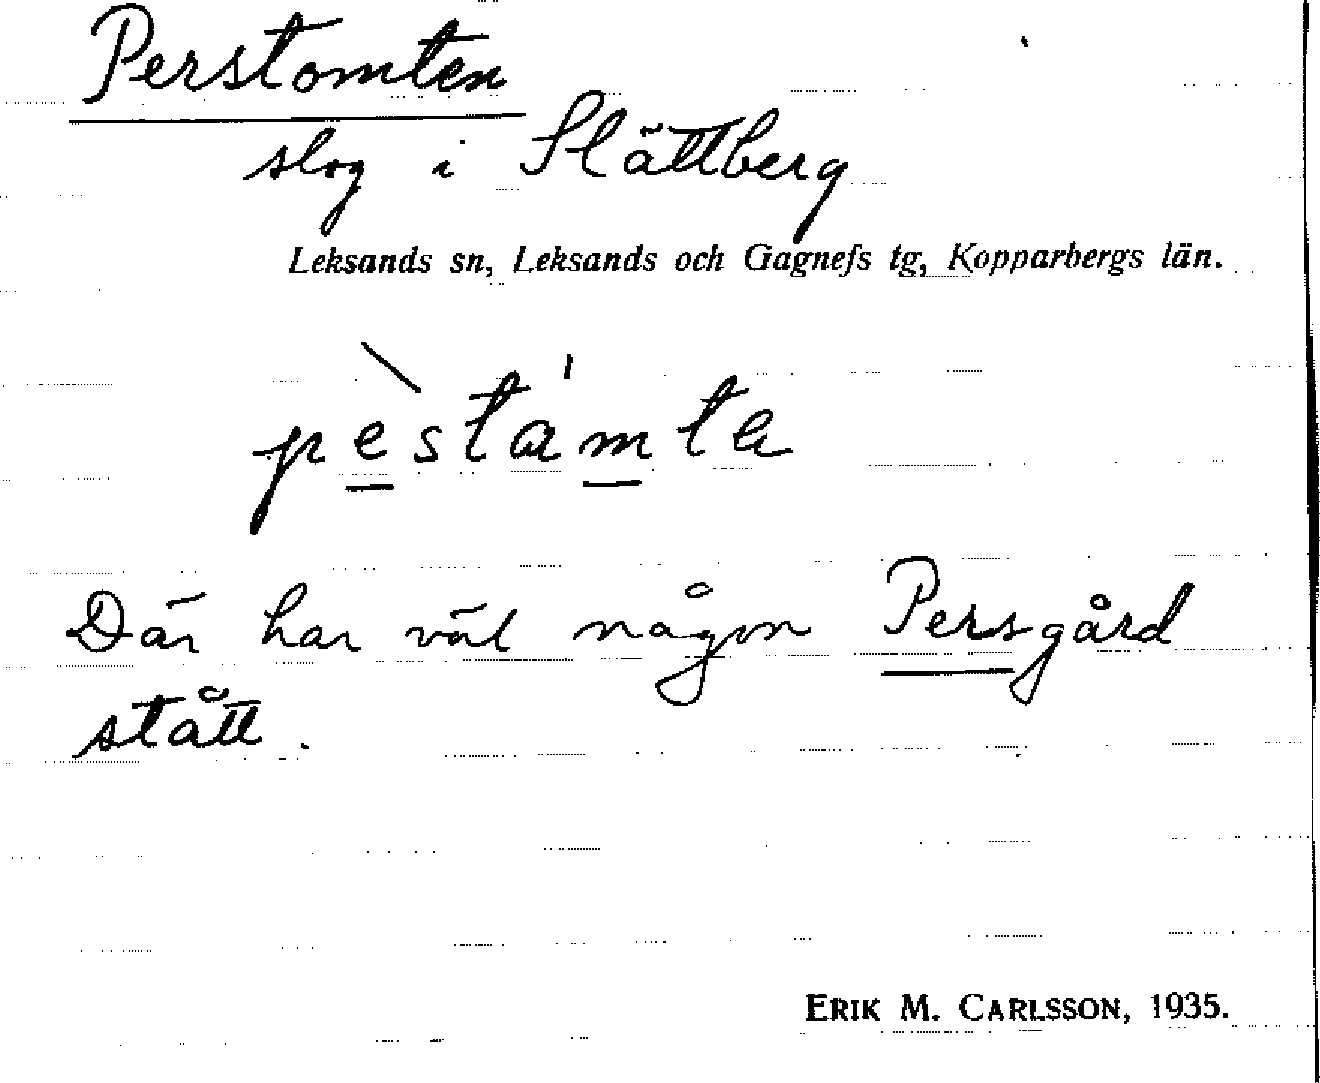 Perstomten
slog i Slättberg
Leksands sn, Leksands och Gagnefs tg, Kopparbergs län.
pèstàmta
Där har väl någon Persgård
stått.
ERIK M. CARLSSON, 1935.